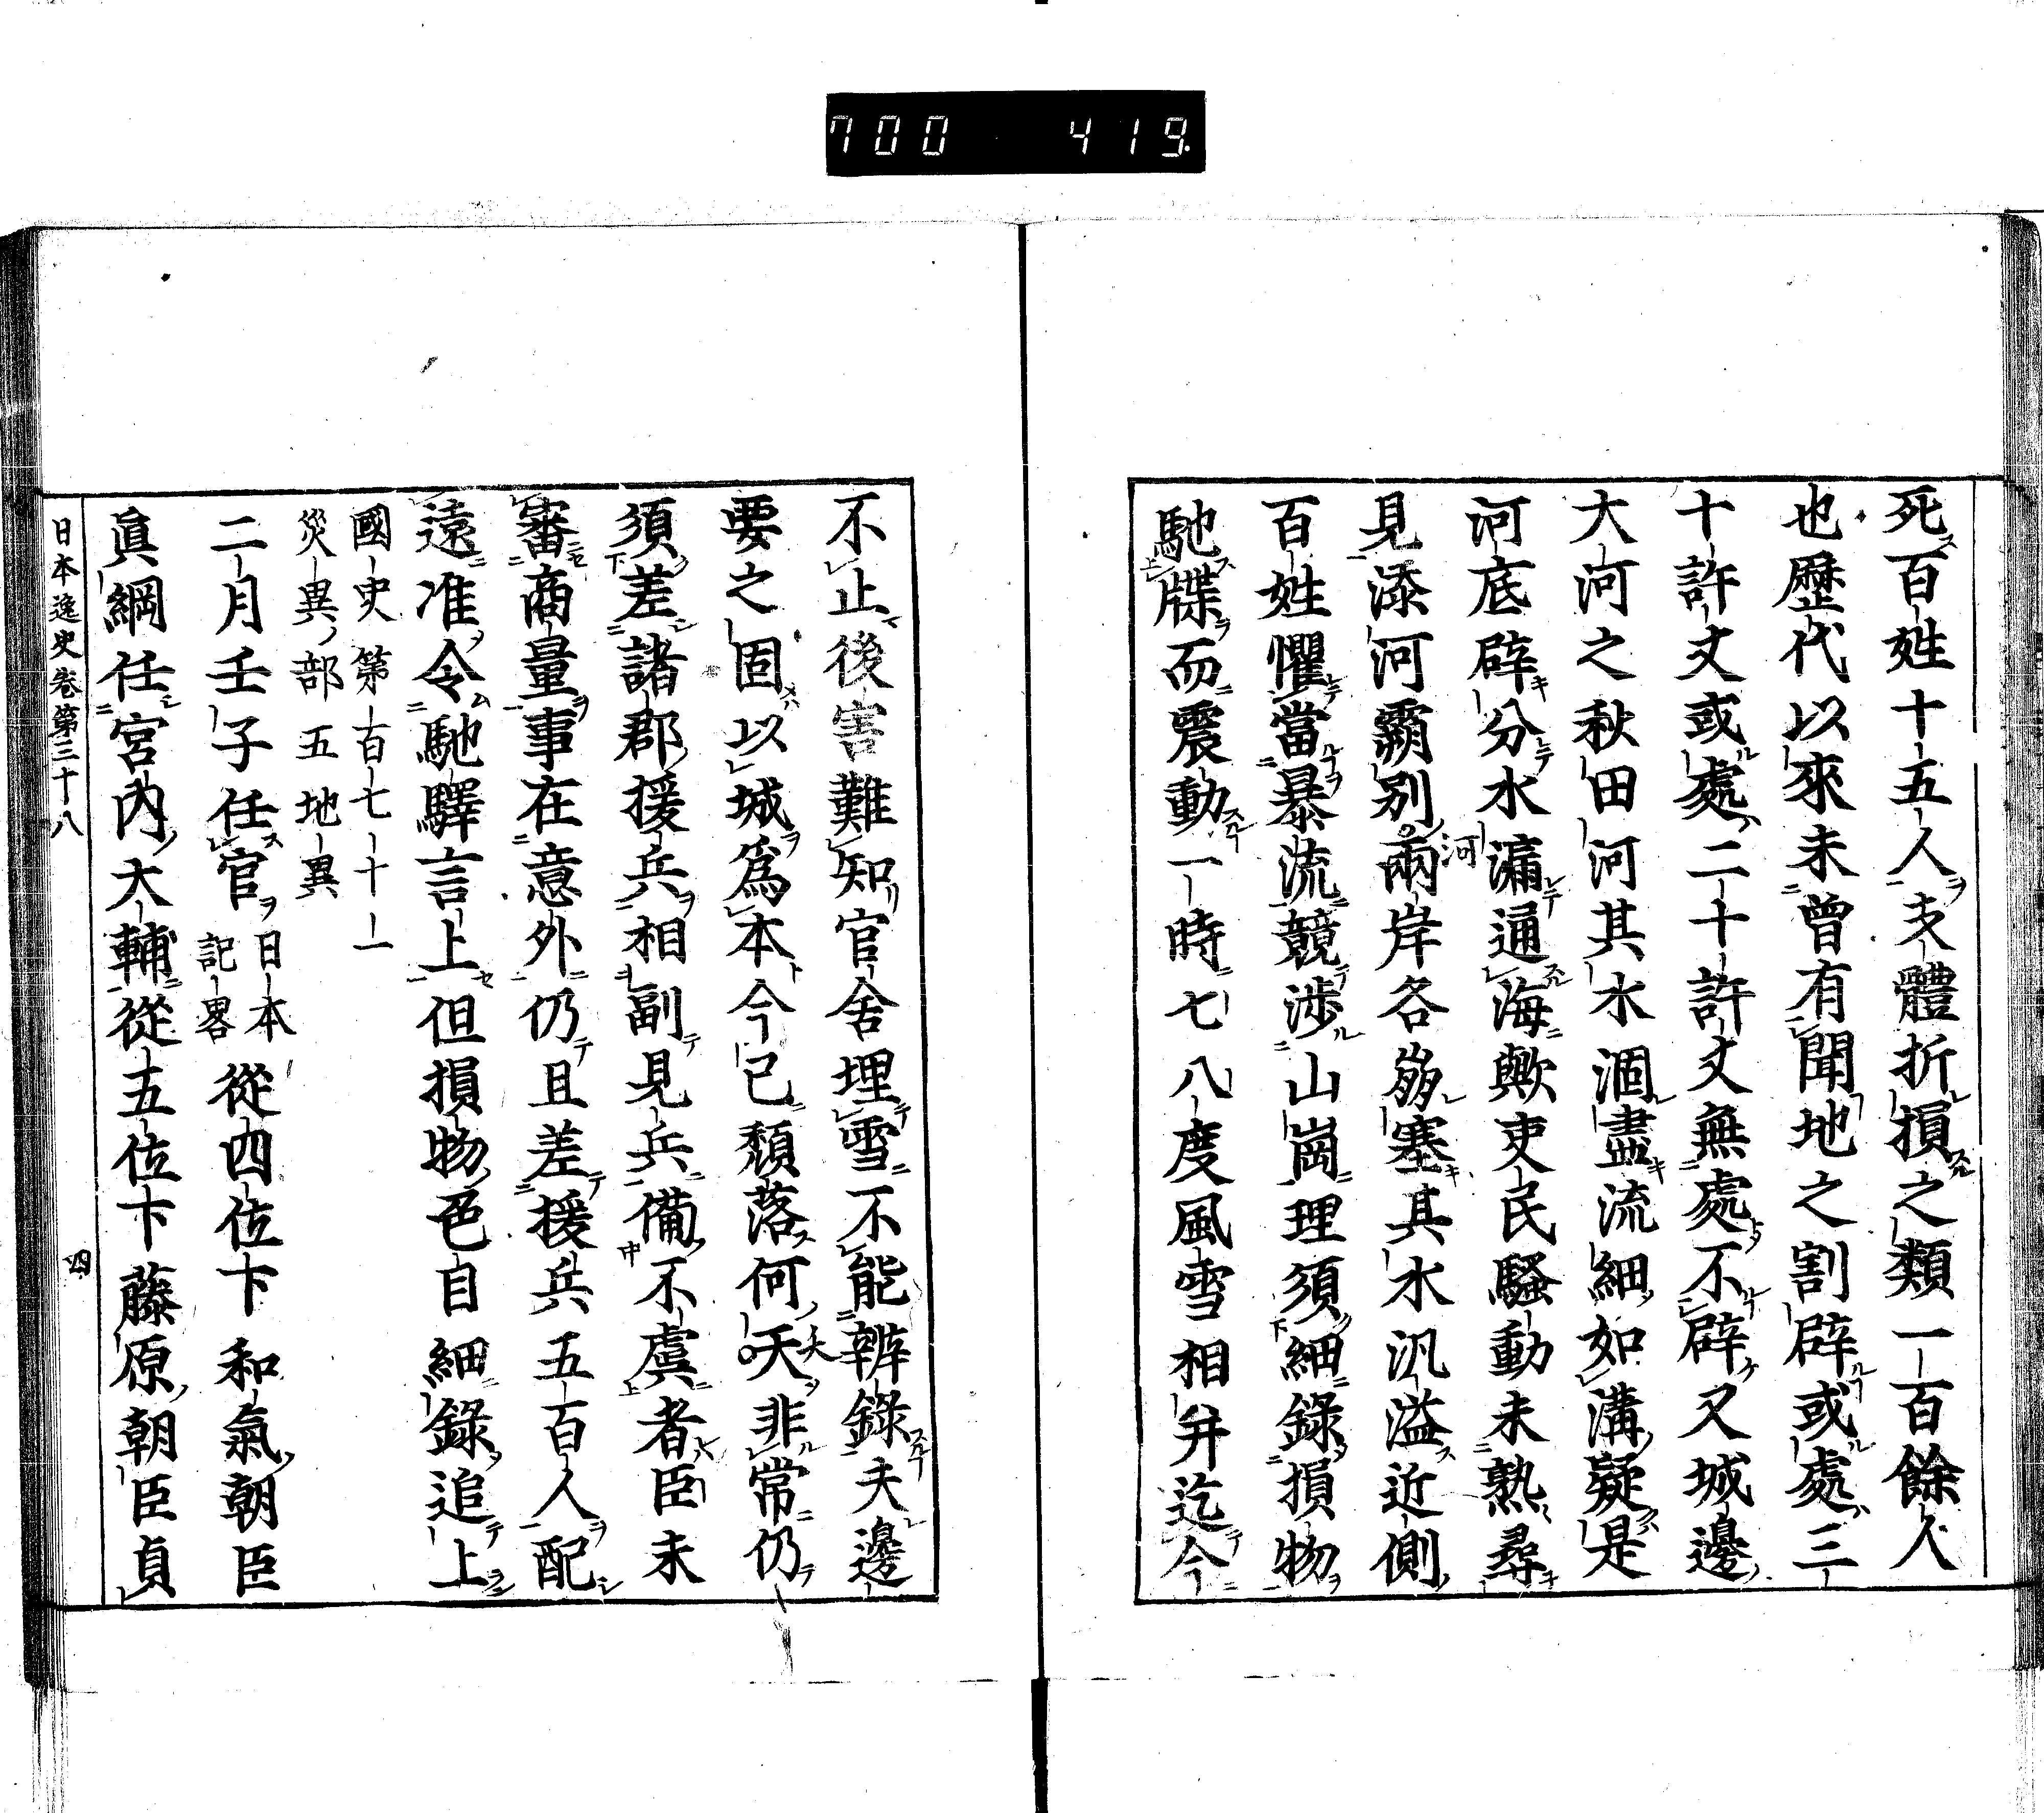 700 419
死百姓十五人支體折損之類一百餘人
也歷代以來未曾有聞地之割辟或處三
十許丈或處二十許丈無處不辟又城邊
大河之秋田河其水涸盡流細如溝疑是
河底辟分水漏通海歟吏民騷動未熟尋
見添河覇別河兩岸各崩塞其水汎溢近側
百姓懼當暴流競渉山崗理須細錄損物
馳牒而震動一時七八度風雪相并迄今
不止後害難知官舍埋雪不能辨錄夫邊
要之固以城爲本今已頽落何夭非常仍
須差諸郡援兵相副見兵備不虞者臣未
審商量事在意外仍且差援兵五百人配
遠准令馳驛言上但損物色目細錄追上
國史第百七十一
災異部五地異
二月壬子任官日本記畧從四位下和氣朝臣
眞綱任宮內大輔從五位下藤原朝臣貞
日本逸史卷第三十八 四